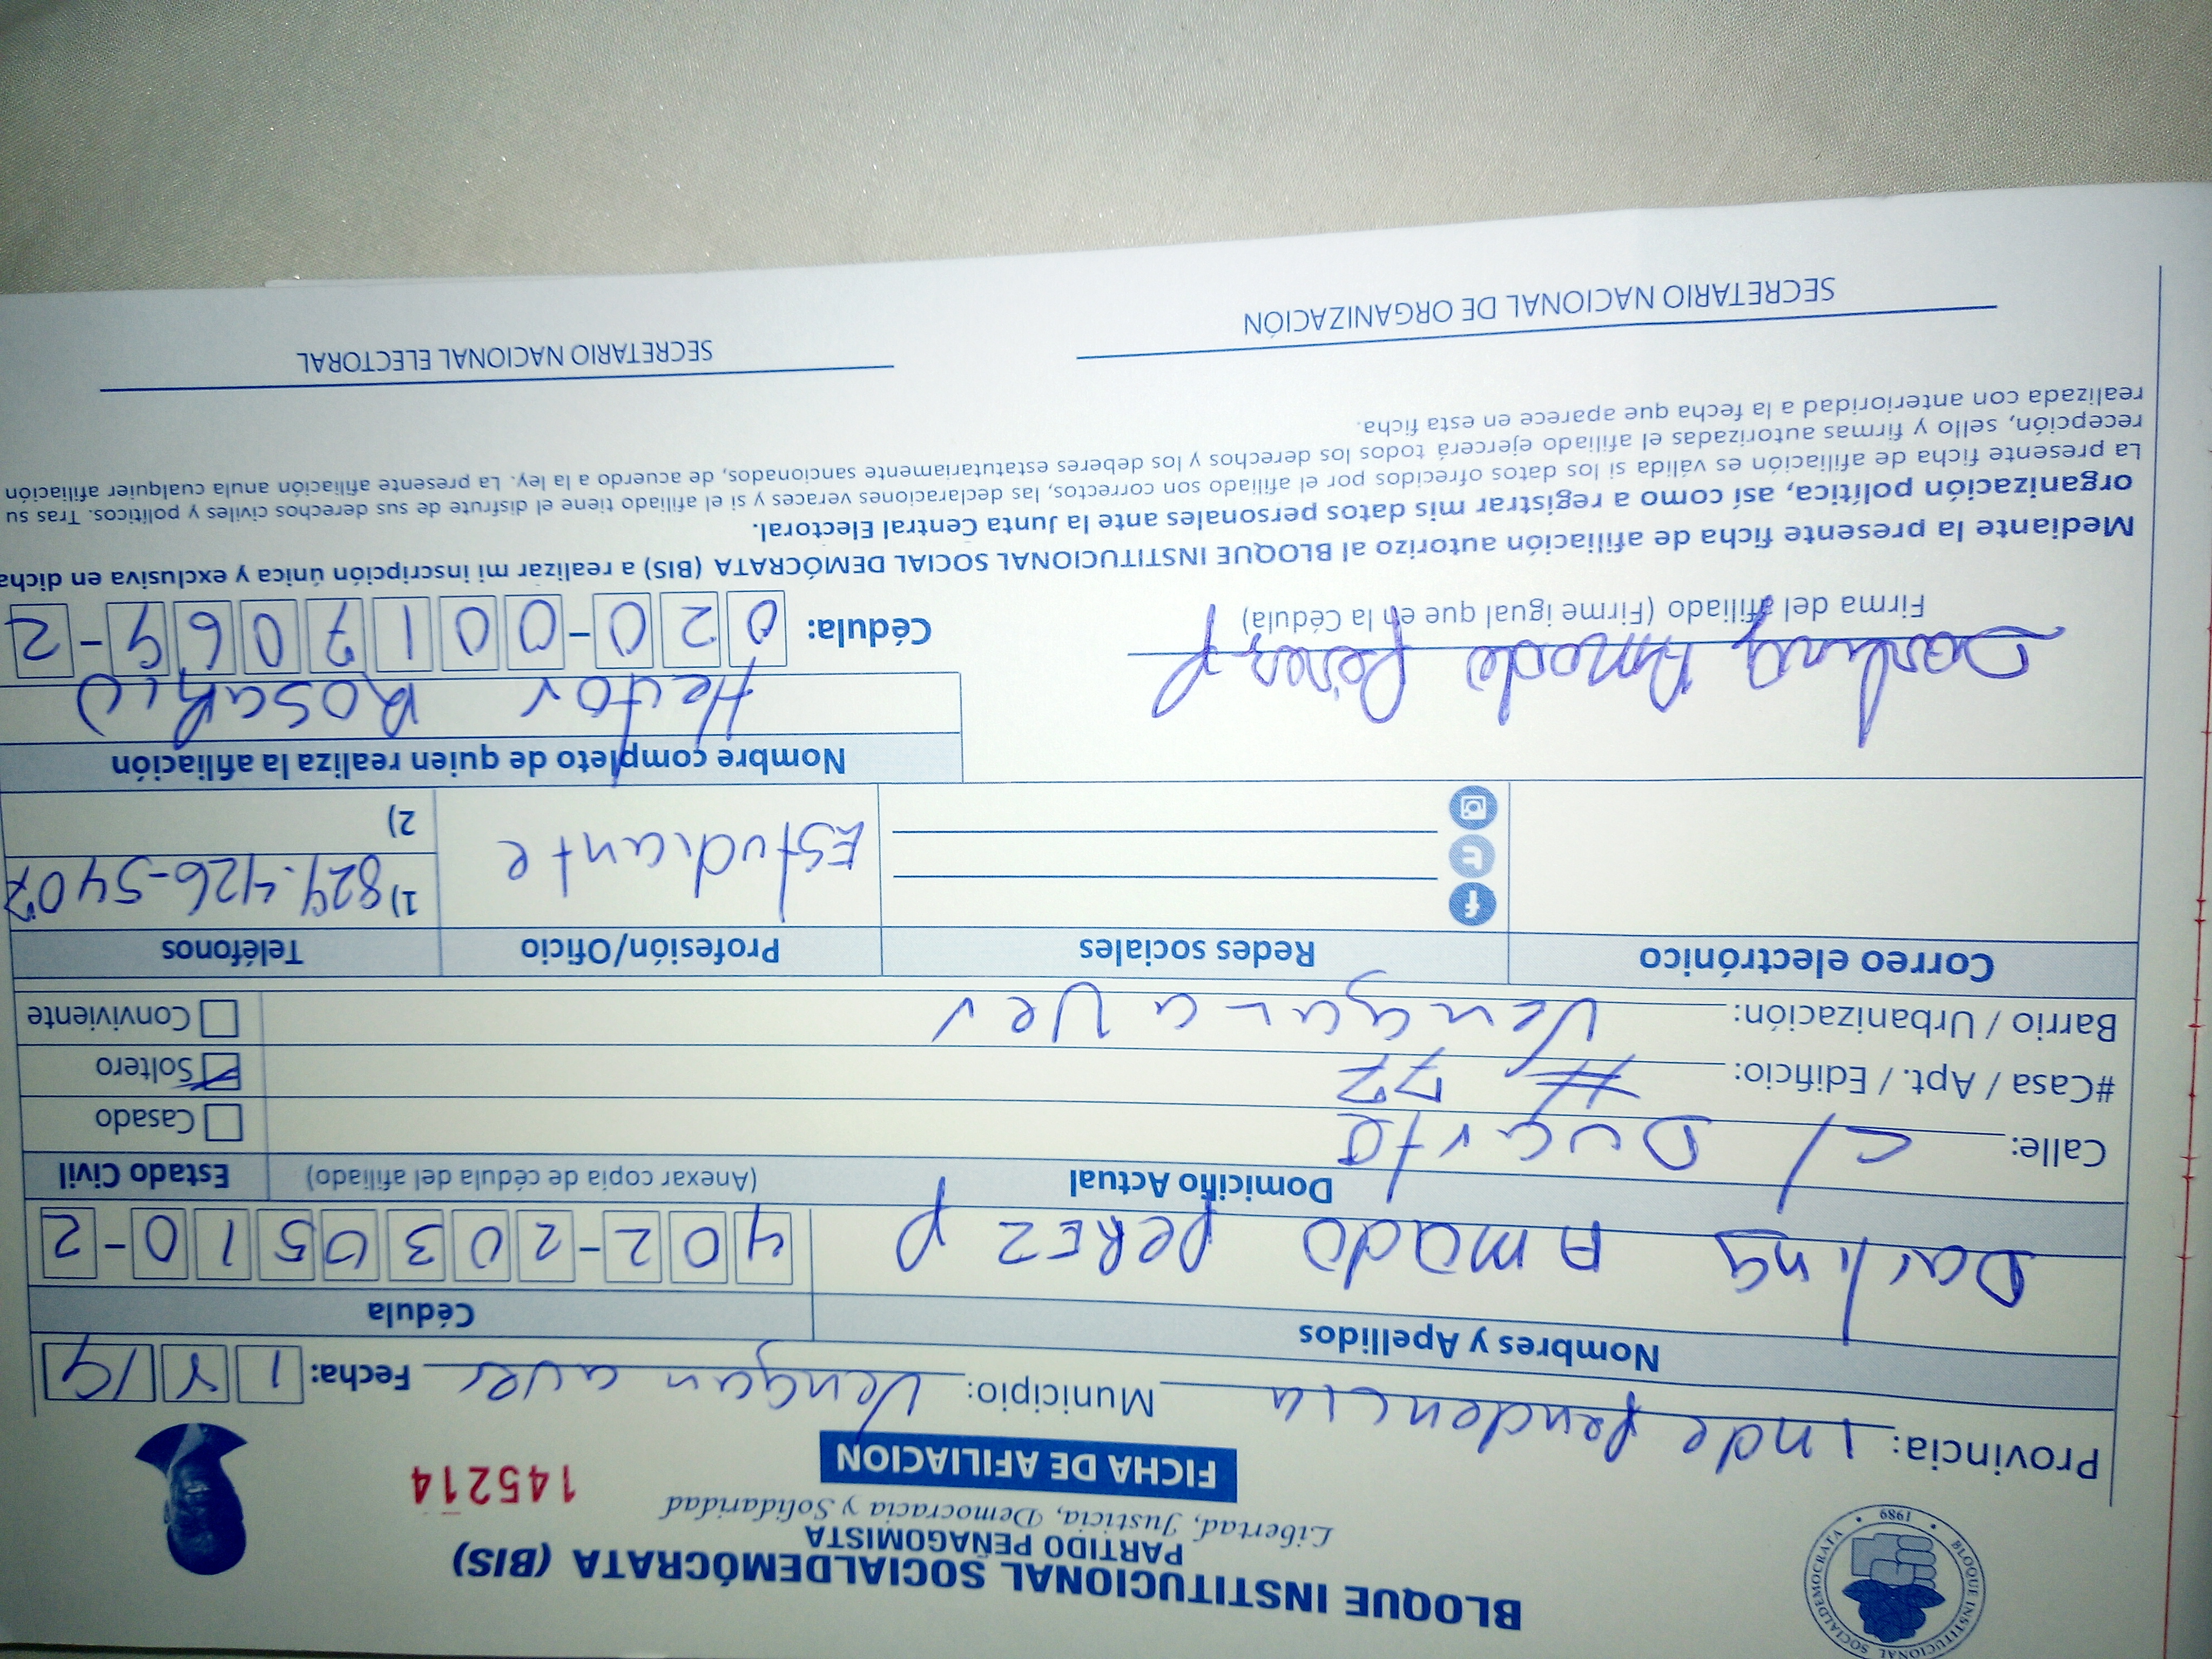 BLOQUE INSTITUCIONAL SOCIALDEMÓCRATA (BIS)
PARTIDO PEÑAGOMISTA
Libertad, Justicia, Democracia y Solidaridad
FICHA DE AFILIACION
145214
BLOQUE INSTITUCIONAL SOCIALDEMOCRATA • 1989 •
Provincia: Independencia Municipio: Vengan a ver Fecha: 1 8 19
Nombres y Apellidos Cédula
Darling Amado PEREZ P 402-2030510-2
Domicilio Actual (Anexar copia de cédula del afiliado) Estado Civil
Calle: C/ Duarte Casado
#Casa / Apt. / Edificio: # 72 Soltero
Barrio / Urbanización: Vengan a Ver Conviviente
Correo electrónico Redes sociales Profesión/Oficio Teléfonos
Estudiante 1) 829-426-5407
2)
Nombre completo de quien realiza la afiliación
Hector Rosario
Darling Amado Pérez P
Firma del afiliado (Firme igual que en la Cédula) Cédula: 020-0017069-2
Mediante la presente ficha de afiliación autorizo al BLOQUE INSTITUCIONAL SOCIAL DEMÓCRATA (BIS) a realizar mi inscripción única y exclusiva en dicha
organización política, así como a registrar mis datos personales ante la Junta Central Electoral.
La presente ficha de afiliación es válida si los datos ofrecidos por el afiliado son correctos, las declaraciones veraces y si el afiliado tiene el disfrute de sus derechos civiles y políticos. Tras su
recepción, sello y firmas autorizadas el afiliado ejercerá todos los derechos y los deberes estatutariamente sancionados, de acuerdo a la ley. La presente afiliación anula cualquier afiliación
realizada con anterioridad a la fecha que aparece en esta ficha.
SECRETARIO NACIONAL DE ORGANIZACIÓN SECRETARIO NACIONAL ELECTORAL